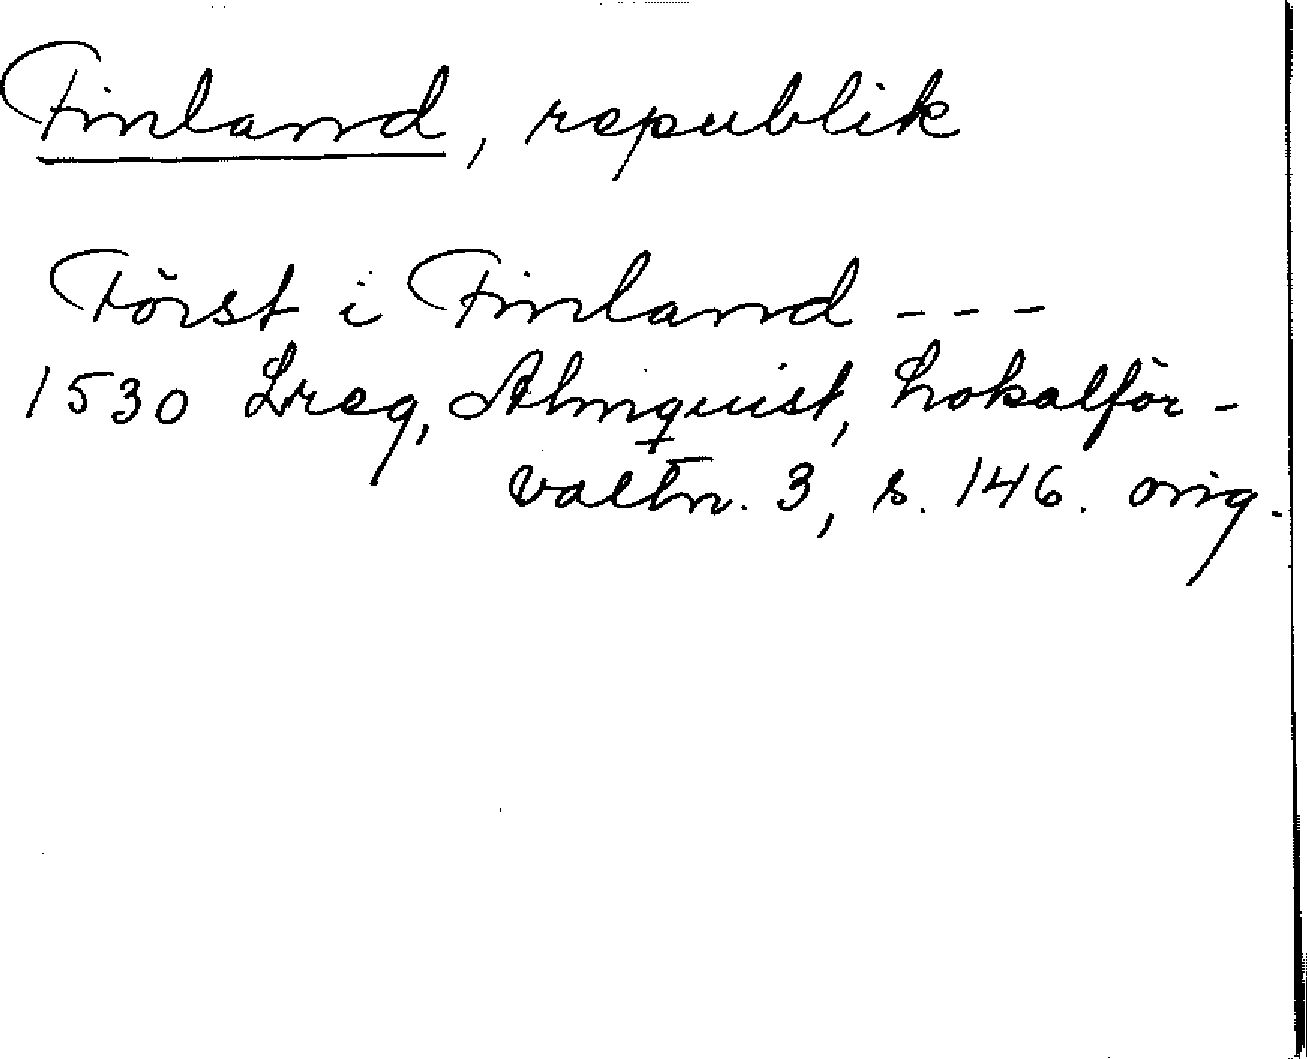 Finland, republik
Först i Finland ---
1530 Lreg, Almquist, Lokalför-
valtn. 3, s. 146. orig.